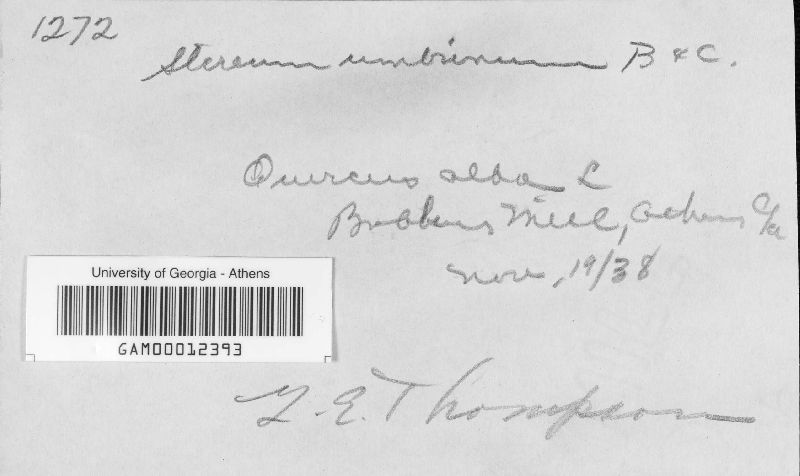 1272
Stereum umbrinum B & C.
Quercus alba L
Mill, Athens Ga
Nov, 19/38
University of Georgia - Athens
GAM00012393
G. E. Thompson